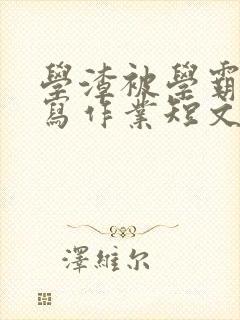 學渣被學霸
寫作業短文
澤維尔